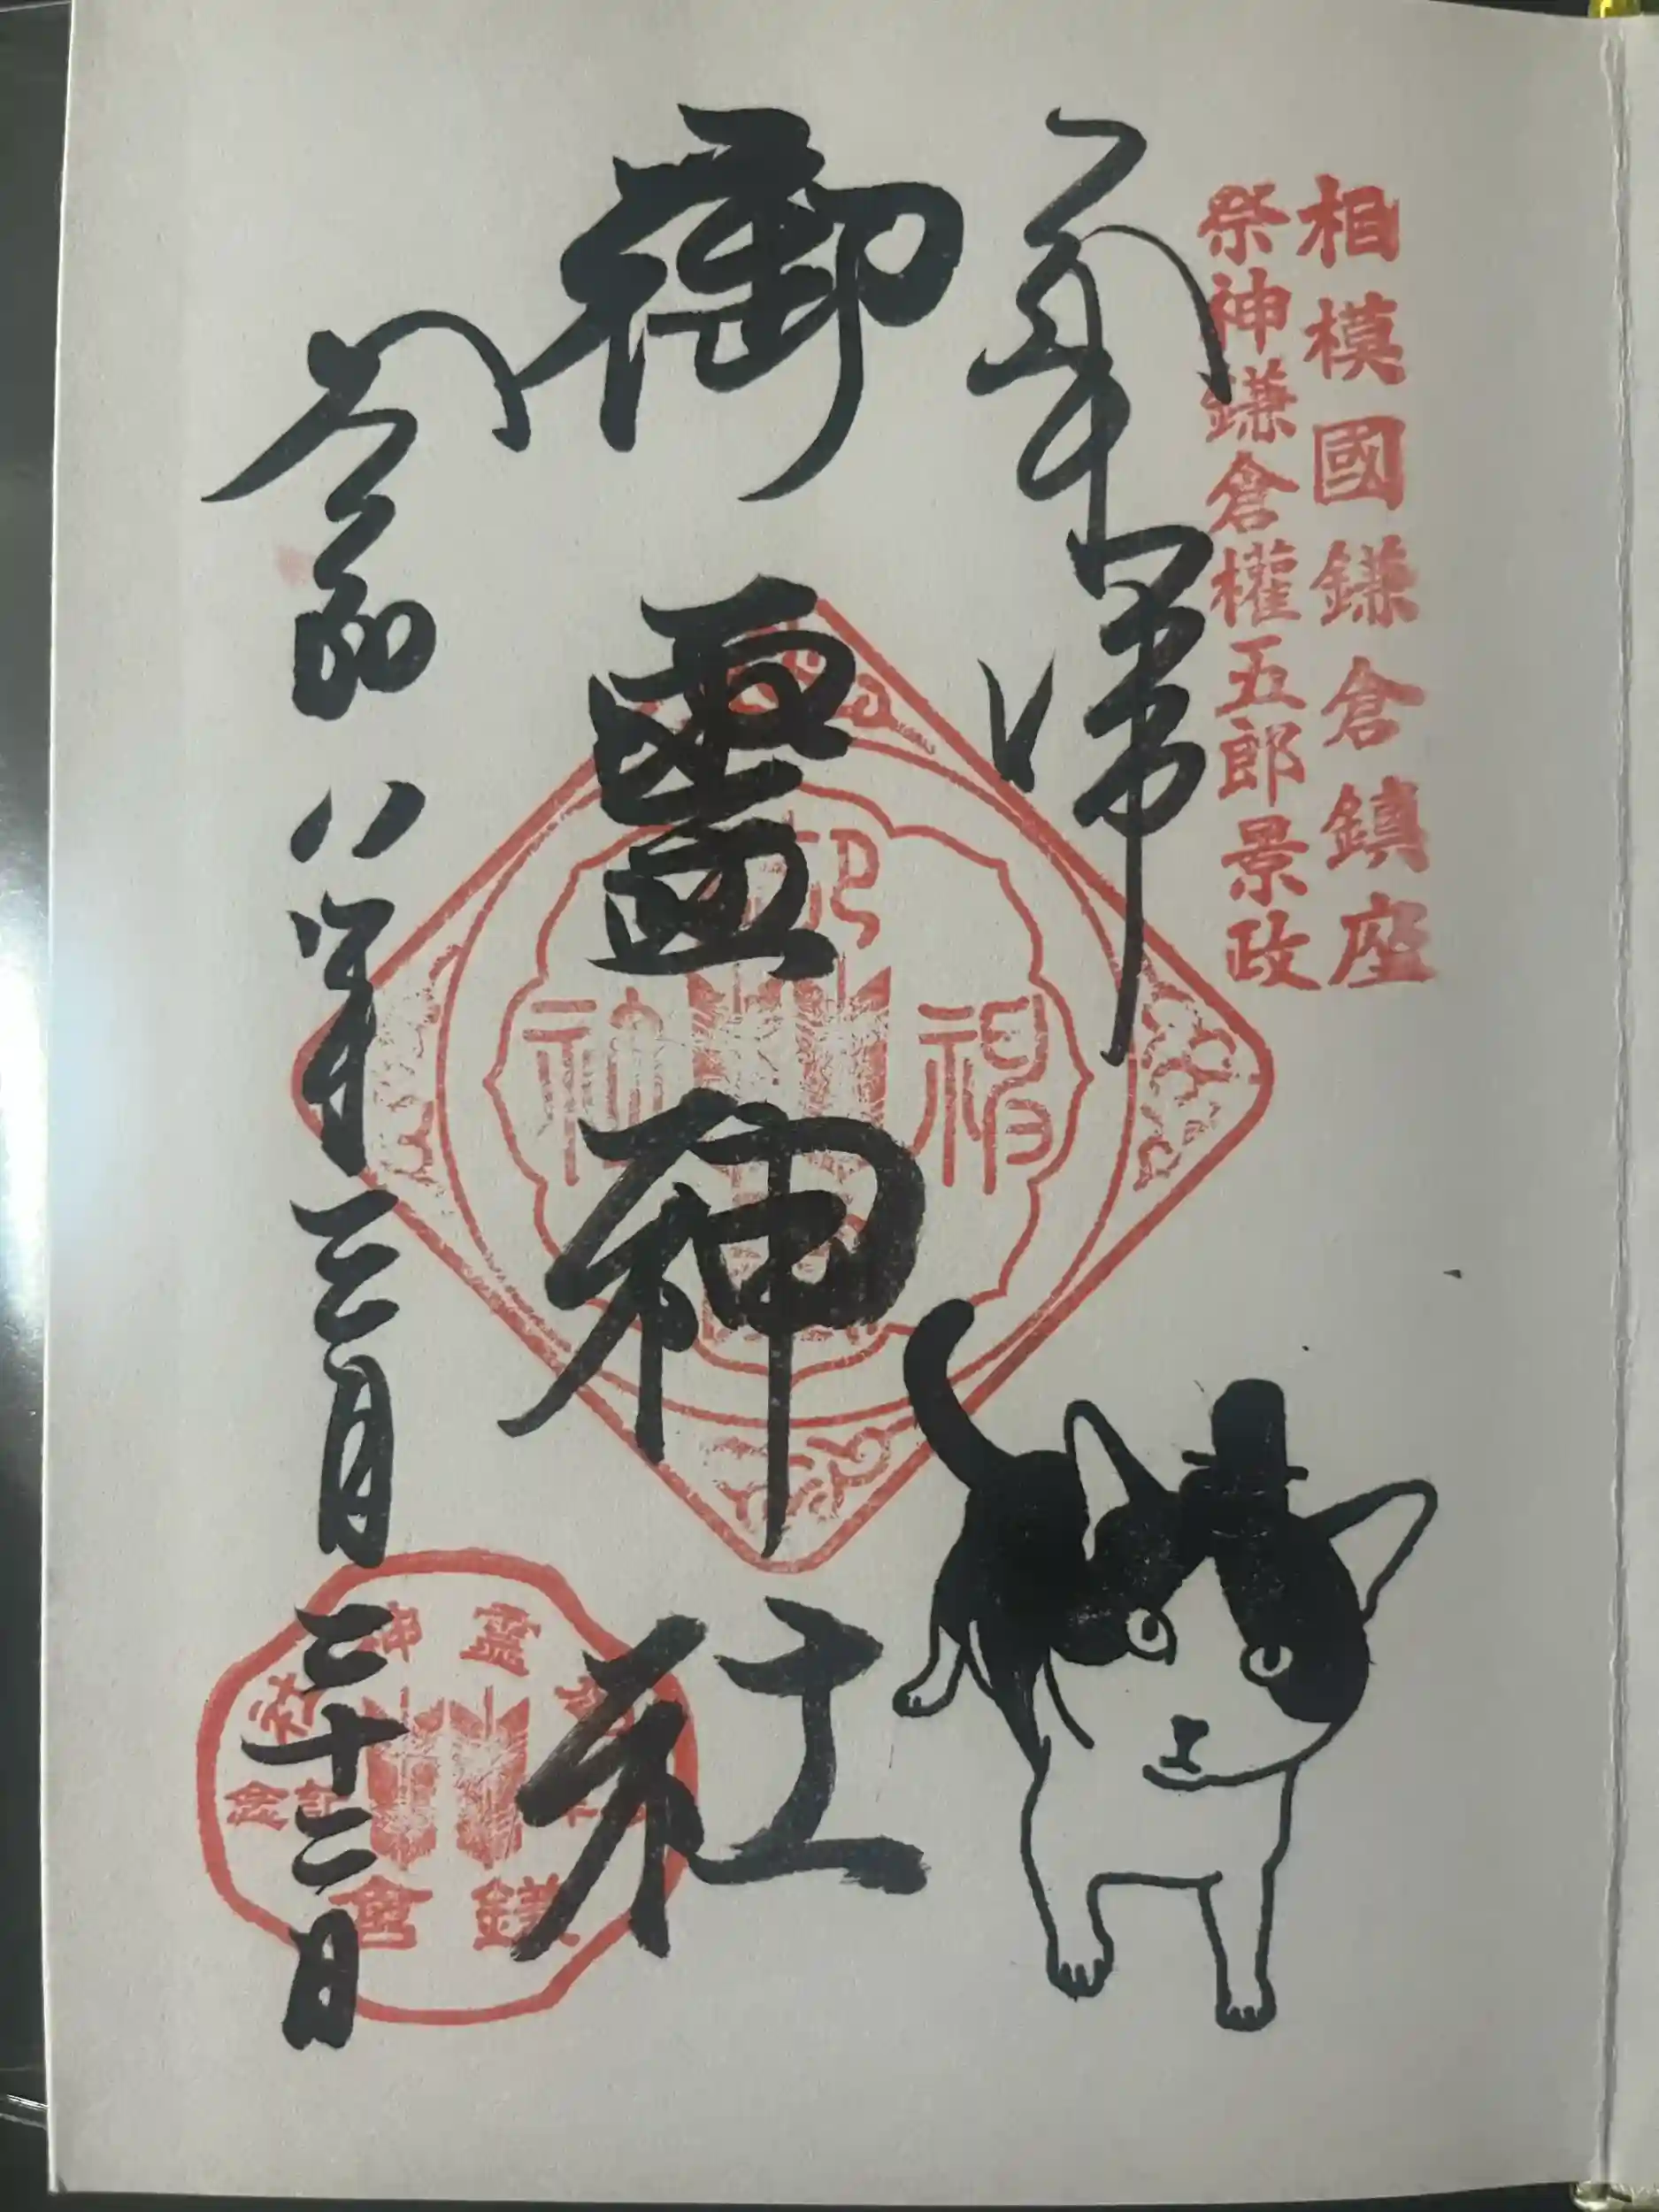 相模國鎌倉鎮座
祭神鎌倉權五郎景政
奉拝
御靈神社
令和八年三月二十二日
神
霊
社
記念
鎌
倉